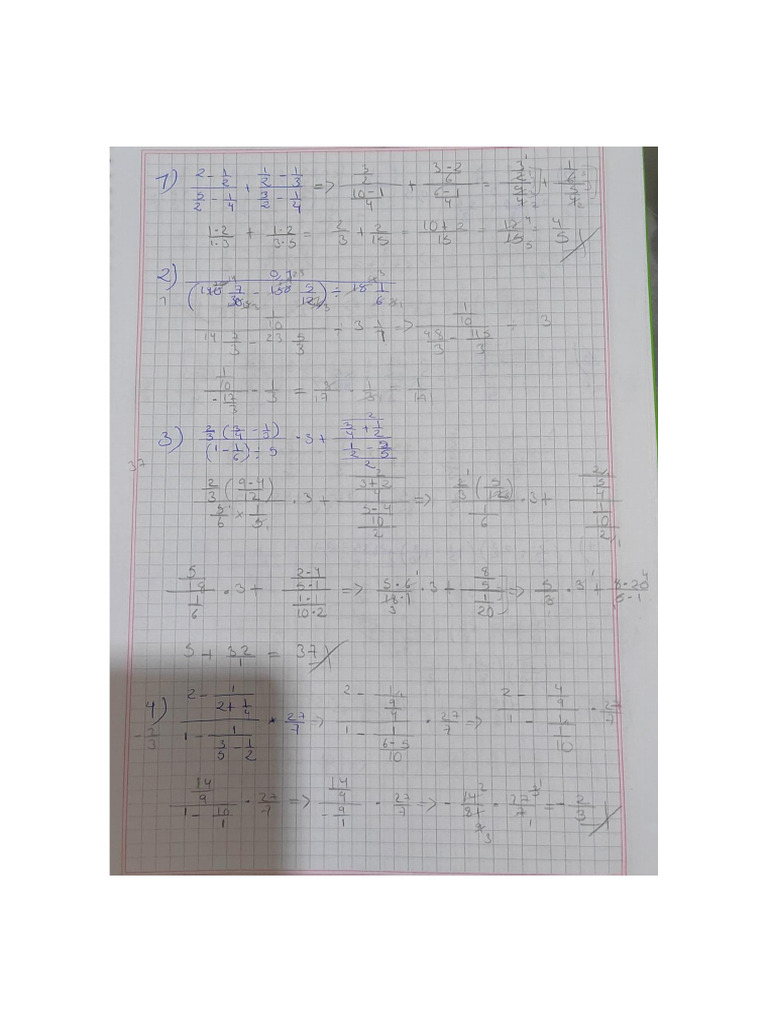 1) (2 - 1/2)/(5/2 - 1/4) + (1/2 - 1/3)/(3/2 - 1/4) => (3/2)/((10-1)/4) + ((3-2)/6)/((6-1)/4) = (3/2)/(9/4) + (1/6)/(5/4)
(1·2)/(1·3) + (1·2)/(3·5) = 2/3 + 2/15 = (10+2)/15 = 12/15 = 4/5
2) 0,1
1 ( 7/30 - 5/12 ) ÷ 1/6
(1/10)/(14 2/3 - 23 5/3) ÷ 3 => (1/10)/(48/3 - 115/3) ÷ 3
(1/10)/(-17/3) - 1/3 = 3/17 · 1/3 = 1/17
3) (2/3 (3/4 - 1/3))/((1 - 1/6) ÷ 5) · 3 + (2/(3/4 + 1/2))/((1/2 - 2/5)/2)
37
(2/3 ((9-4)/12))/(5/6 × 1/5) · 3 + (2/((3+2)/4))/(((5-4)/10)/2) => (2/3 (5/12))/(1/6) · 3 + (2/(5/4))/((1/10)/2)
(5/18)/(1/6) · 3 + ((2·4)/(5·1))/((1·1)/(10·2)) => (5·6)/(18·1) · 3 + (8/5)/(1/20) => 5/3 · 3 + (8·20)/(5·1)
5 + 32/1 = 37
4) (2 - 1/(2 + 1/4))/(1 - 1/(3/5 - 1/2)) · 27/7 => (2 - 1/(9/4))/(1 - 1/((6-5)/10)) · 27/7 => (2 - 4/9)/(1 - 1/(1/10)) · 27/7
-2/3
(14/9)/(1 - 10/1) · 27/7 => (14/9)/(-9/1) · 27/7 => -14/81 · 27/7 = -2/3